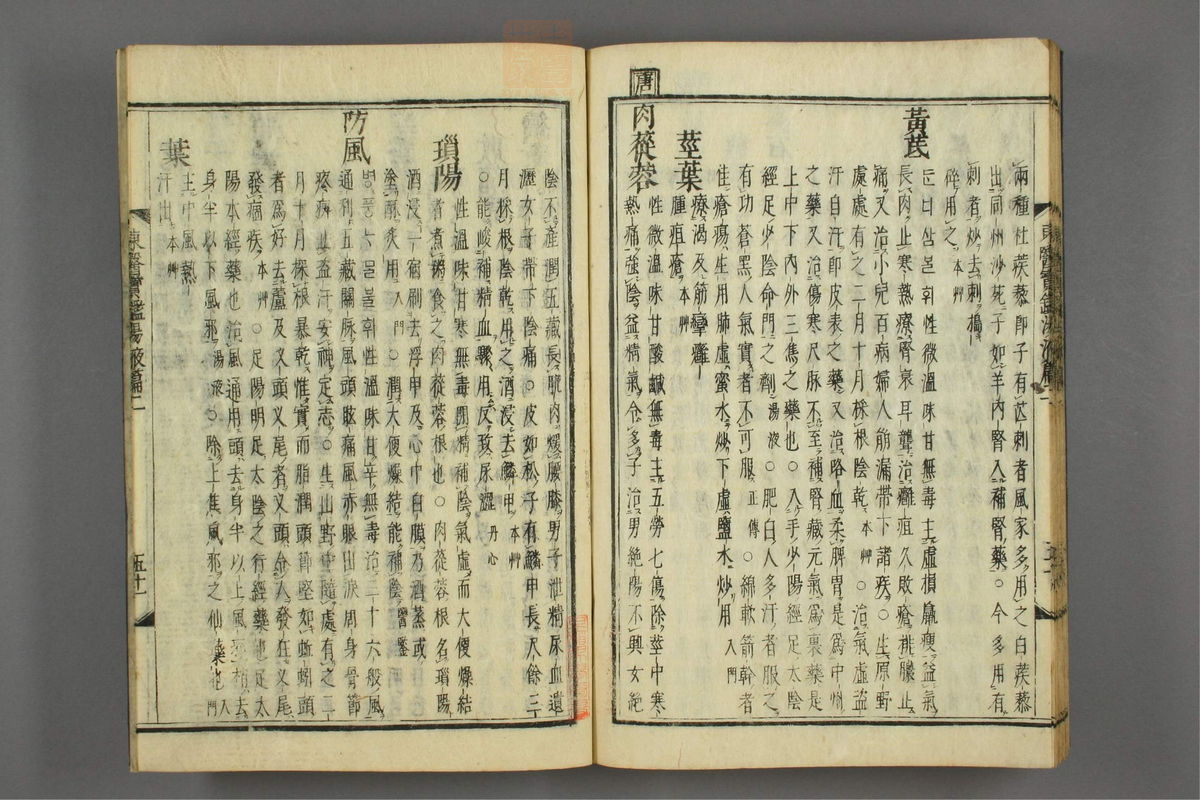 兩種杜蒺藜卽子有芒刺者風家多用之白蒺藜
出同州沙苑子如羊內腎入補腎藥○今多用有
刺者炒去刺搗
碎用之 本草
黃芪
든너삼불휘性微溫味甘無毒主虛損羸瘦益氣
長肉止寒熱療腎衰耳聾治癰疽久敗瘡排膿止
痛又治小兒百病婦人崩漏帶下諸疾○生原野
處處有之二月十月採根陰乾 本草 ○治氣虛盜
汗自汗卽皮表之藥又治咯血柔脾胃是爲中州
之藥又治傷寒尺脉不至補腎藏元氣爲裏藥是
上中下內外三焦之藥也○入手少陽經足太陰
經足少陰命門之劑 湯液 ○肥白人多汗者服之
有功蒼黑人氣實者不可服 正傳 ○綿軟箭幹者
佳瘡瘍生用肺虛蜜水炒下虛鹽水炒用 入門
莖葉
療渴及筋攣癰
腫疽瘡 本草
唐
肉蓯蓉
性微溫味甘酸鹹無毒主五勞七傷除莖中寒
熱痛強陰益精氣令多子治男絶陽不興女絶
陰不產潤五藏長肌肉煖腰膝男子泄精尿血遺
瀝女子帶下陰痛○皮如松子有鱗甲長尺餘三
月採根陰乾用之酒浸去鱗甲 本草
○能峻補精血驟用反致尿澀 丹心
瑣陽
性溫味甘寒無毒固精補陰氣虛而大便燥結
者煮粥食之肉蓯蓉根也○肉蓯蓉根名瑣陽
酒浸一宿刷去浮甲及心中白膜乃酒蒸或
塗酥灸用 入門 ○潤大便燥結能補陰 醫鑒
防風
병풍ᄂᆞ믈불휘性溫味甘辛無毒治三十六般風
通利五藏關脉風頭眩痛風赤眼出淚周身骨節
疼痺止盜汗安神定志○生山野中隨處有之二
月十月採根暴乾惟實而脂潤頭節堅如蚯蚓頭
者爲好去蘆及叉頭叉尾者叉頭令人發狂叉尾
發痼疾 本草 ○足陽明足太陰之行經藥也足太
陽本經藥也治風通用頭去身半以上風邪梢去
身半以下風邪 湯液 ○除上焦風邪之仙藥也 入門
葉
主中風熱
汗出 本草
東醫寶鑑湯液篇二
五十一